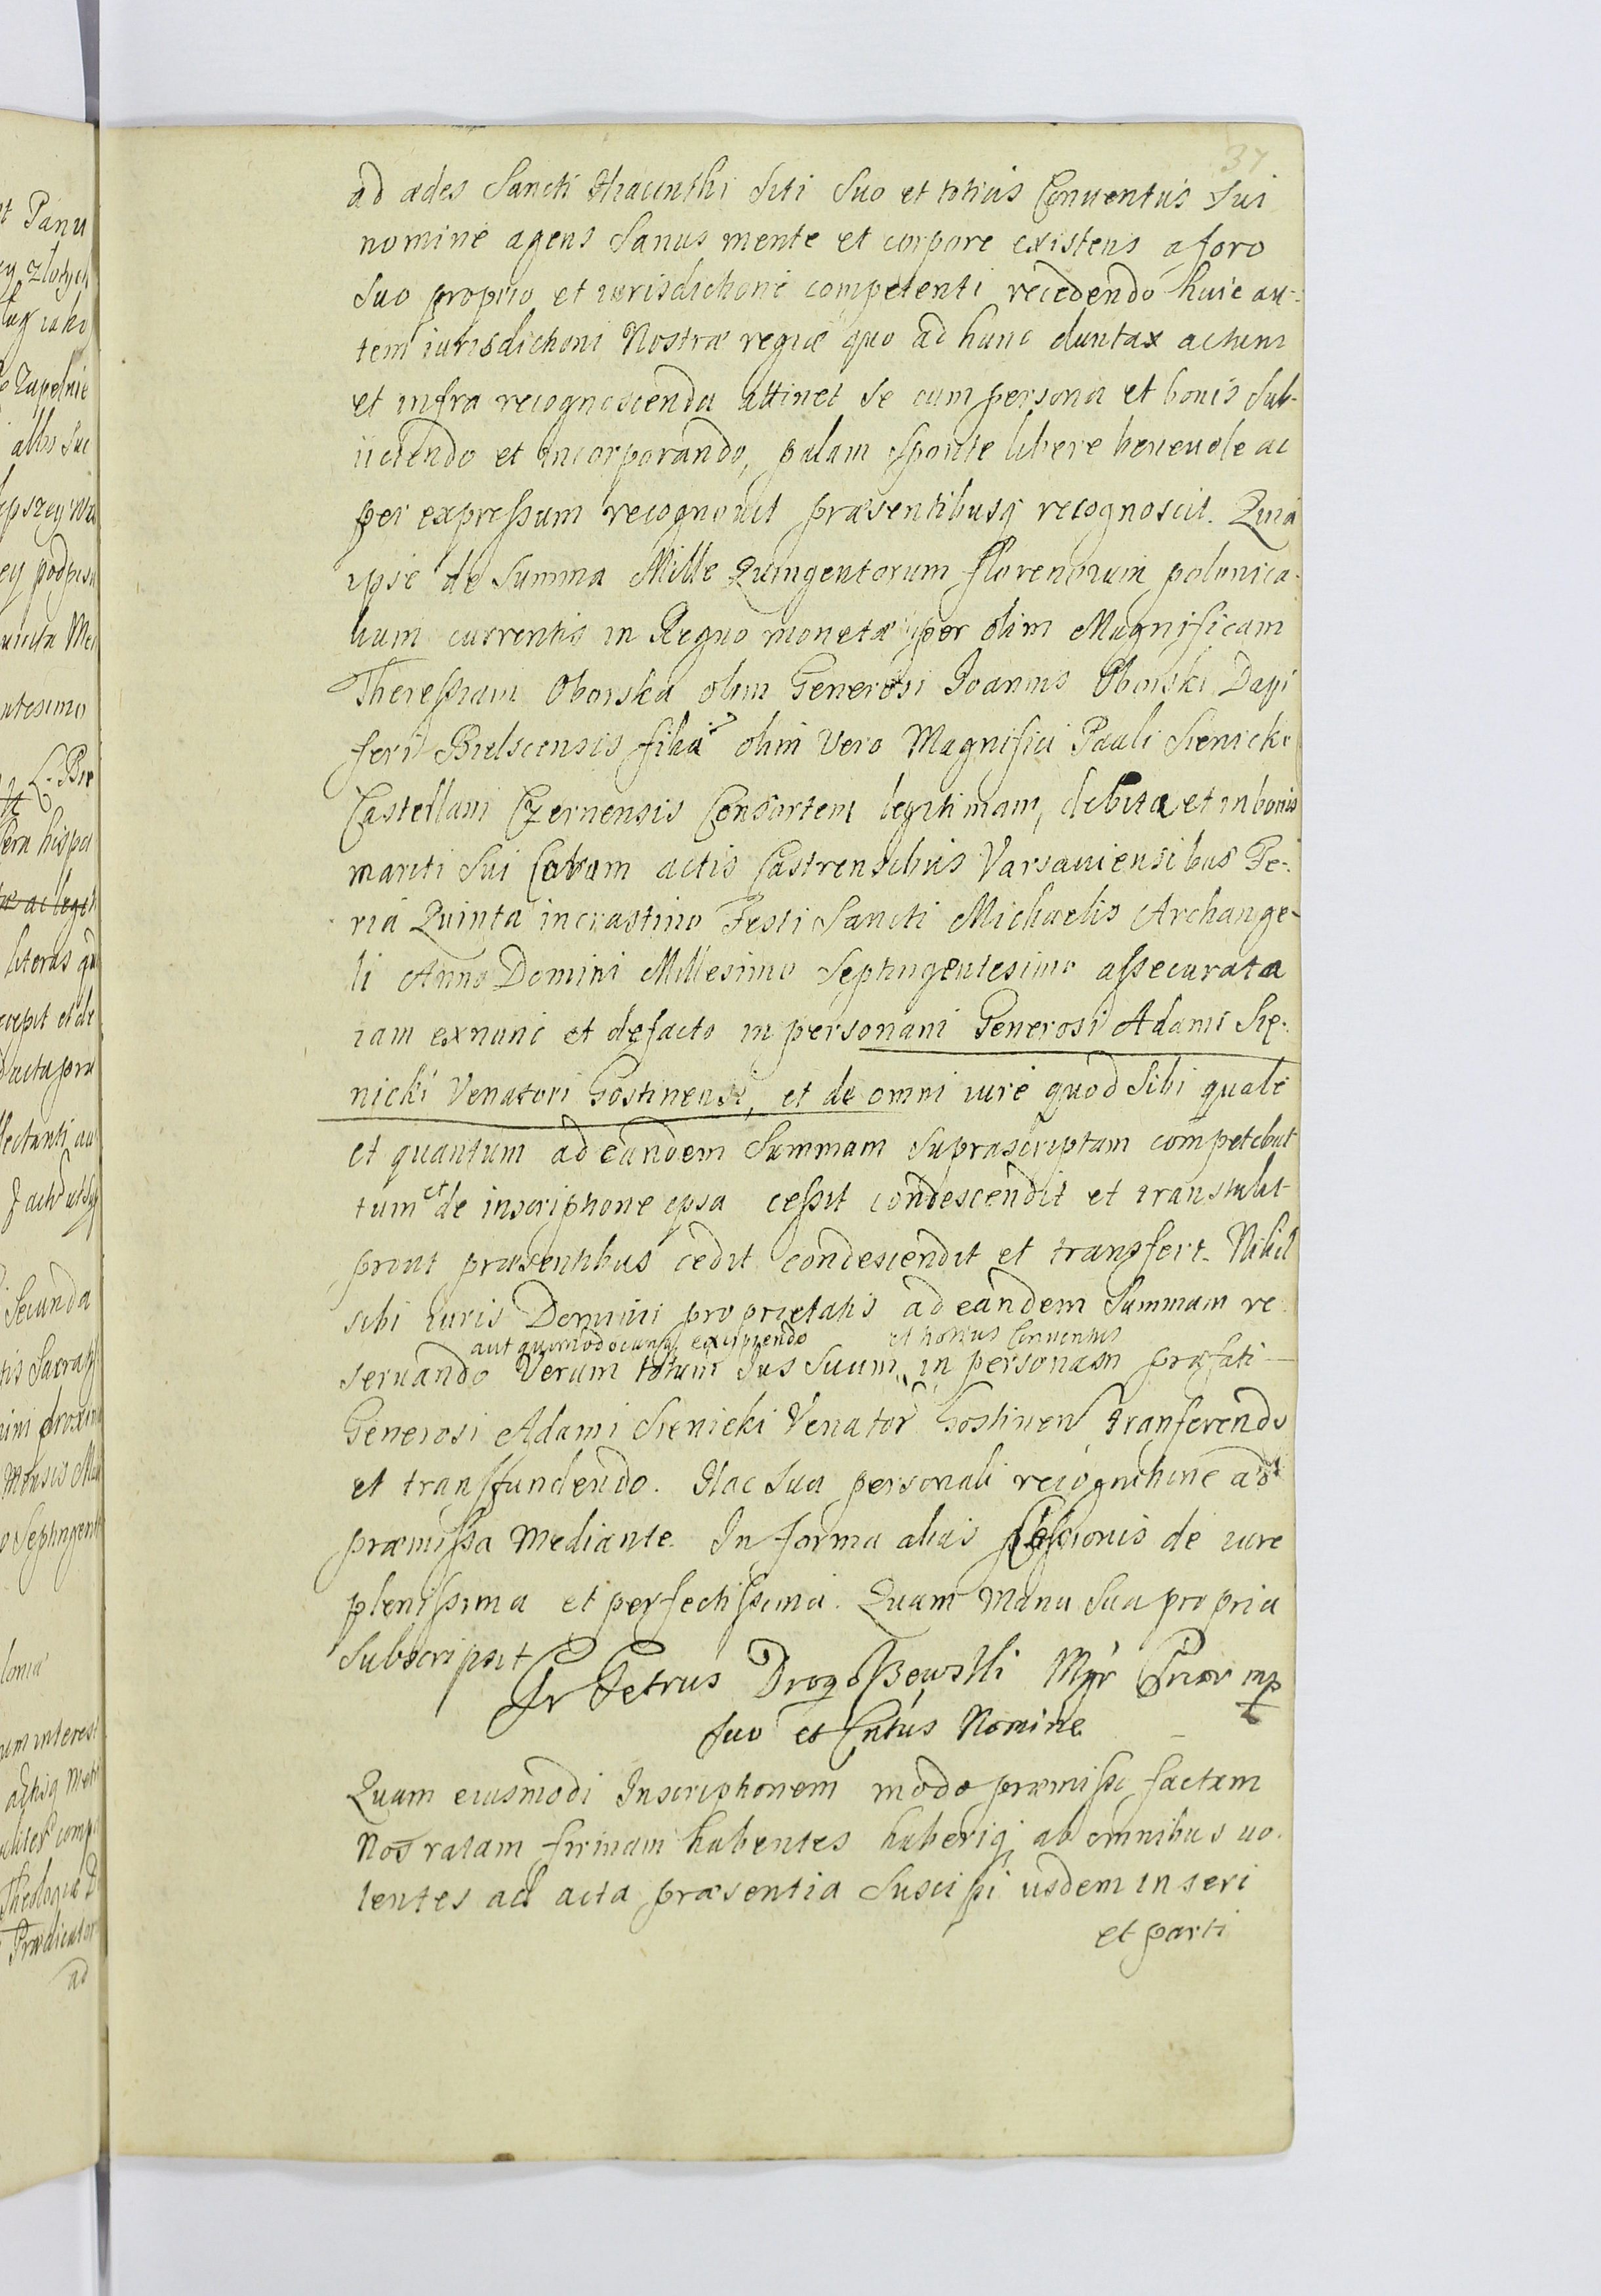 37
ad ædes Sancti Hiacinthi siti Suo et totius Conventus Sui
nomine agens Sanus mente et corpore existens a foro
Suo proprio et iurisdictione competenti recedendo huic au-
tem iurisdictioni Nostræ regiæ quo ad hunc duntax actum
et infra recognoscenda attinet se cum persona et bonis Sub-
iiciendo et incorporando, palam sponte libere benevole ac
per expressum recognovit præsentibusq recognoscit. Quia
ipse de Summa Mille Quingentorum florenorum polonica-
lium currentis in Regno monetæ per olim Magnificam
Theressiam Oborska olim Generosi Joannis Oborski Dapi
feri Bielscensis filia olim vero Magnifici Pauli Sienicki
Castellani Czernensis Consortem legitimam, debita et in bonis
mariti Sui Coram actis Castrensibus Varsaviensibus Fe-
ria Quinta in crastino Festi Sancti Michaelis Archange-
li Anno Domini Millesimo Septingentesimo assecurata
iam exnunc et defacto in personam Generosi Adami Sie-
nicki Venatori Gostinensi, et de omni iure quod Sibi quale
et quantum ad eandem Summam Suprascriptam competebat
tum et de inscriptione ipsa cessit condescendit et transtulit
prout præsentibus cedit condescendit et transfert. Nihil
sibi iuris Dominii proprietatis ad eandem Summam re
aut quomodocunq excipiendo et totius Conventus
servando Verum totum Jus Suum in personam præfati
Generosi Adami Sienicki Venator Gostinen Tranferendo
et transfundendo. Hac Sua personali recognitione ad
præmissa Mediante. In forma alias Cessionis de iure
plenissima et perfectissima. Quam Manu Sua propria
Subscripsit
Fr Petrus Drogoszewski Mgr Prior mp
Suo et Cntus Nomine
Quam eiusmodi Inscriptionem modo præmisso factam
Nos ratam firmam habentes haberiq ab omnibus vo-
lentes ad acta præsentia Suscipi iisdem inseri
et parti